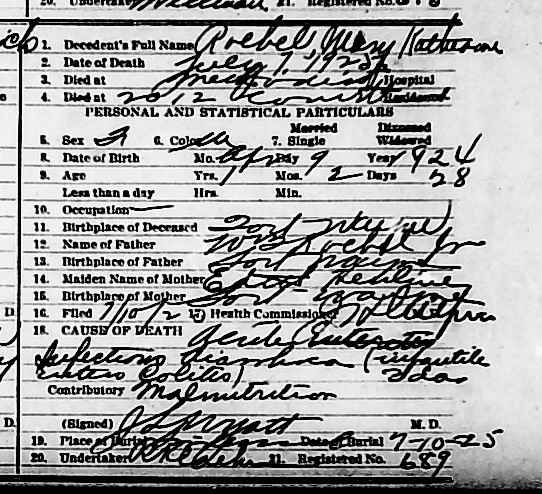 20. Undertaker William 21. Registered No.
1. Decedent's Full Name Roebel, Mary Katherine
2. Date of Death July 7, 1925
3. Died at Methodist Hospital
4. Died at 2012 Residence
PERSONAL AND STATISTICAL PARTICULARS
Married Divorced
5. Sex F 6. Color W 7. Single Widowed
8. Date of Birth Mo. Apr Day 9 Year 1924
9. Age Yrs. 1 Mos. 2 Days 28
Less than a day Hrs. Min.
10. Occupation —
11. Birthplace of Deceased Fort Wayne
12. Name of Father Wm Roebel Jr
13. Birthplace of Father Fort Wayne
14. Maiden Name of Mother
15. Birthplace of Mother Fort Wayne
D. 16. Filed 7/10/2 17. Health Commissioner
18. CAUSE OF DEATH Acute Enteritis
Infectious diarrhoea (infantile
Entero Colitis)
Contributory Malnutrition
D. (Signed) M. D.
19. Place of Burial Date of Burial 7-10-25
20. Undertaker 21. Registered No. 689